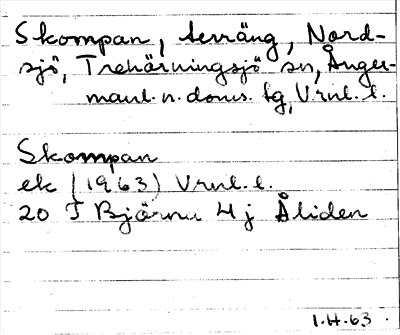 Skompan, terräng, Nord-
sjö, Trehörningsjö sn, Ånger-
manl. n. doms. tg, Vrnl. l.
Skompan
ek (1963) Vrnl. l.
20 J Björna 4j Åliden
1.H.63.